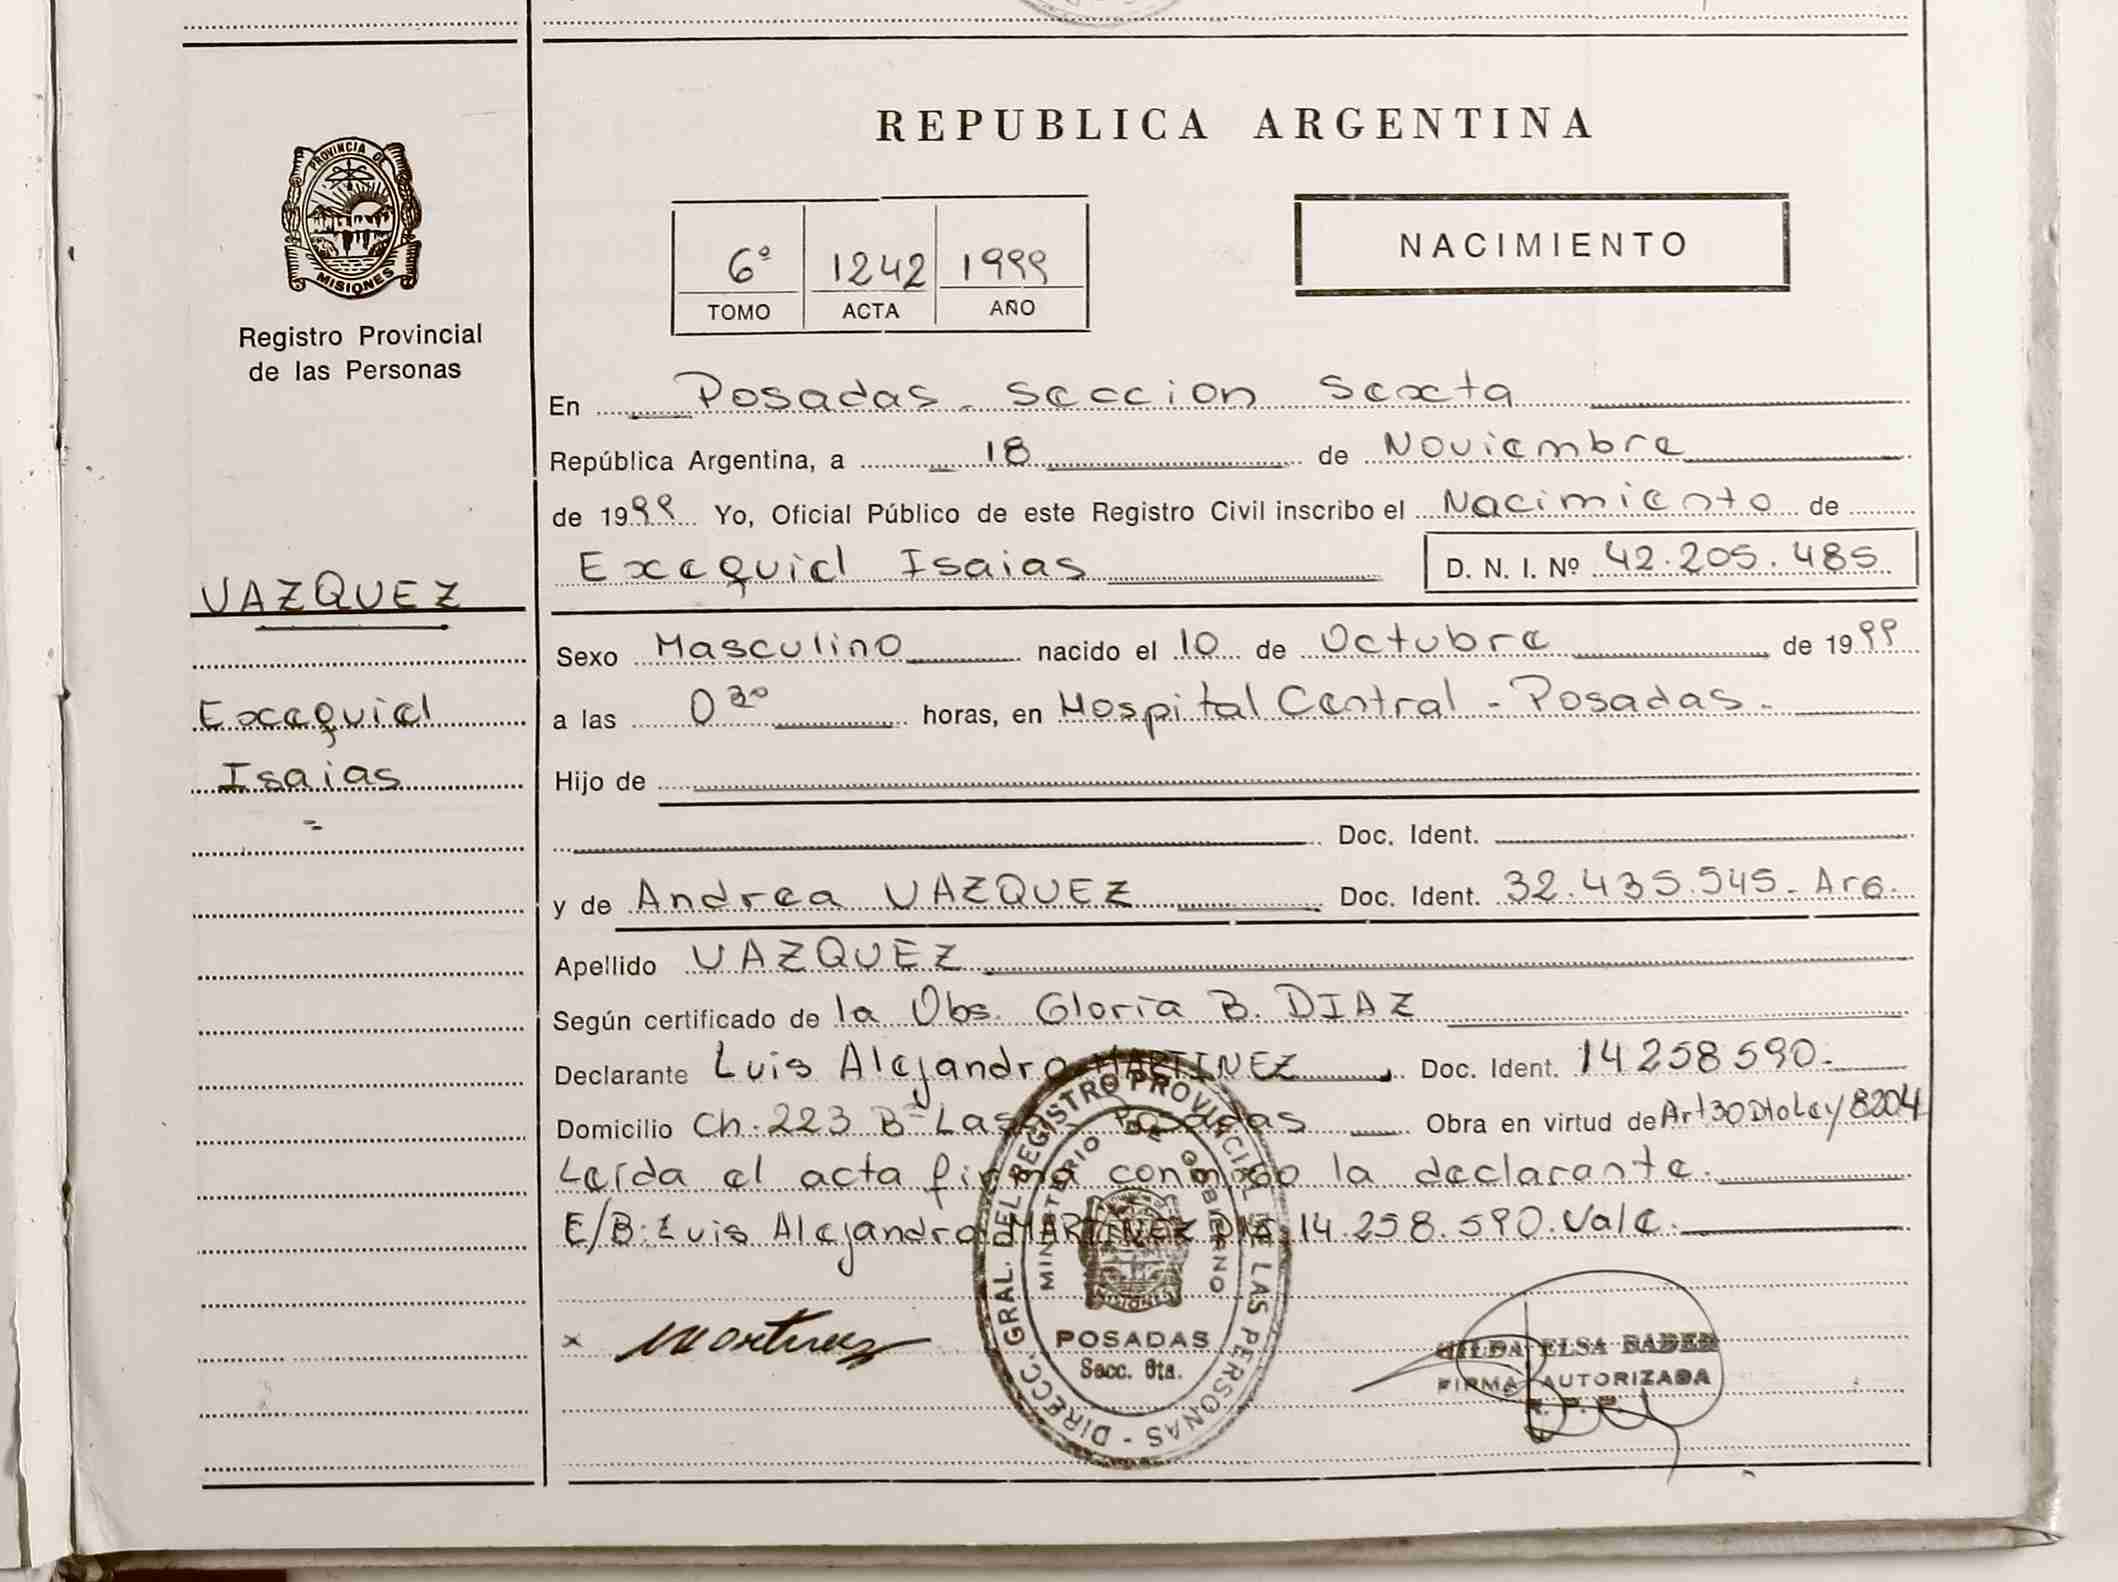 PROVINCIA DE
MISIONES
Registro Provincial
de las Personas
VAZQUEZ
Exequiel
Isaias
REPUBLICA ARGENTINA
6º 1242 1999
TOMO ACTA AÑO
NACIMIENTO
En Posadas - Seccion Sexta
República Argentina, a 18 de Noviembre
de 1999 Yo, Oficial Público de este Registro Civil inscribo el Nacimiento de
Exequiel Isaias D. N. I. Nº 42.205.485
Sexo Masculino nacido el 10 de Octubre de 1999
a las 0 30 horas, en Hospital Central - Posadas -
Hijo de
Doc. Ident.
y de Andrea VAZQUEZ Doc. Ident. 32.435.545 - Arg.
Apellido VAZQUEZ
Según certificado de la Obs. Gloria B. DIAZ
Declarante Luis Alejandro MARTINEZ Doc. Ident. 14258590-
Domicilio Ch. 223 Bº Las Posadas Obra en virtud de Art 30 Dto Ley 8204
Leída el acta firma conmigo la declarante.
E/B: Luis Alejandro MARTINEZ 14.258.590. Vale.
x Martinez
DIRECC. GRAL. DEL REGISTRO PROVINCIAL DE LAS PERSONAS -
MINISTERIO DE GOBIERNO
MISIONES
POSADAS
Secc. 6ta.
ELSA BADER
FIRMA AUTORIZADA